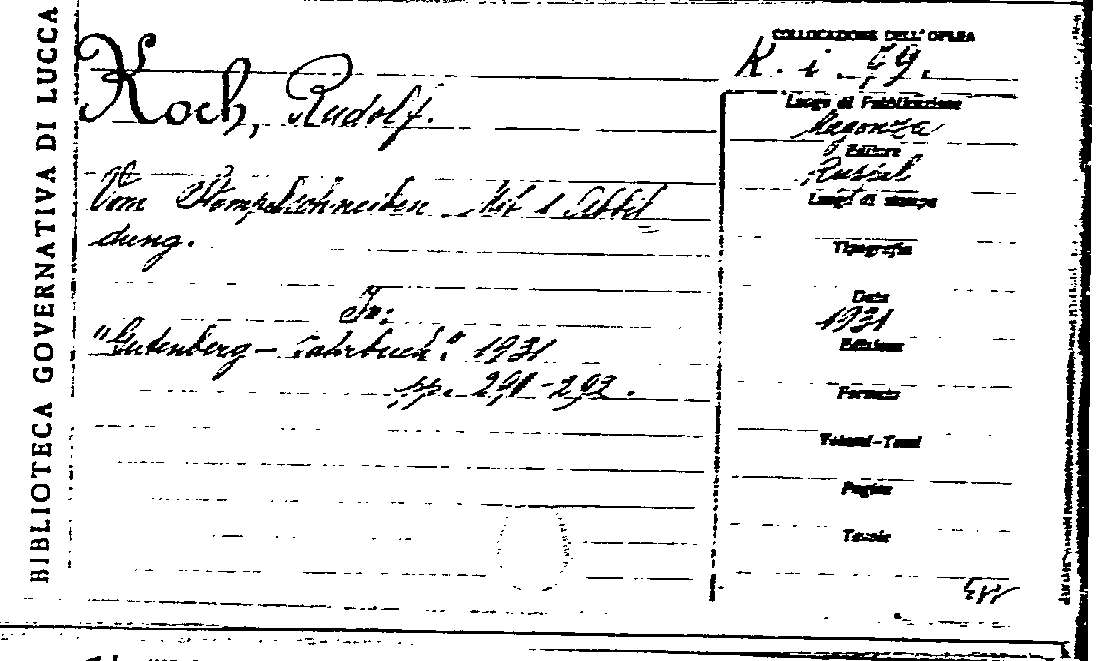 BIBLIOTECA GOVERNATIVA DI LUCCA
COLLOCAZIONE DELL'OPERA
K. i. 59.
Koch, Rudolf.
Vom Stempelschneiden. Mit 1 Abbil
dung.
In:
"Gutenberg-Jahrbuch". 1931
pp. 291-293.
Luogo di Pubblicazione
Magonza
Editore
Luogo di stampa
Tipografia
Data
1931
Edizione
Formato
Volumi-Tomi
Pagine
Tavole